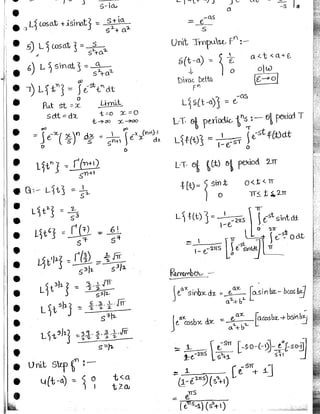 s-ia
L{cosat + isinat} = s+ia / s²+a²
5) L{cosat} = s / s²+a²
6) L{sinat} = a / s²+a²
7) L{tⁿ} = ∫₀^∞ e^-st tⁿ dt
Put st = x Limit
sdt = dx t→0 x→0
t→∞ x→∞
= ∫₀^∞ e^-x (x/s)ⁿ dx/s = 1/sⁿ⁺¹ ∫₀^∞ e^-x x^(n+1)-1 dx
L{tⁿ} = Γ(n+1) / sⁿ⁺¹
Q:- L{t} = 1/s²
L{t²} = 2/s³
L{t⁶} = Γ(7)/s⁷ = 6!/s⁷
L{t^1/2} = Γ(3/2)/s^3/2 = ½√π/s^3/2
L{t^3/2} = 3/2·½√π / s^5/2
L{t^5/2} = 5/2·3/2·½√π / s^7/2
Unit Step fⁿ :—
u(t-a) = { 0 t<a
1 t≥a
= e^-as / s
Unit Impulse Fⁿ:—
δ(t-a) = { 1/ε a<t<a+ε
0 o/w
Dirac Delta Fⁿ ε→0
L{δ(t-a)} = e^-as
L.T. of periodic fⁿs :— of period T
L{f(t)} = 1/1-e^-sT ∫₀^T e^-st f(t)dt
L.T. of f(t) of period 2π
f(t) = { sint 0<t<π
0 π≤t≤2π
L{f(t)} = 1/1-e^-2πs [∫₀^π e^-st sint dt
+ ∫ e^-st 0 dt
Remember —
∫e^ax sinbx dx = e^ax/a²+b² [asinbx - bcosbx]
∫e^ax cosbx dx = e^ax/a²+b² [acosbx + bsinbx]
= 1/(1-e^-2πs)(s²+1) [e^-sπ + 1]